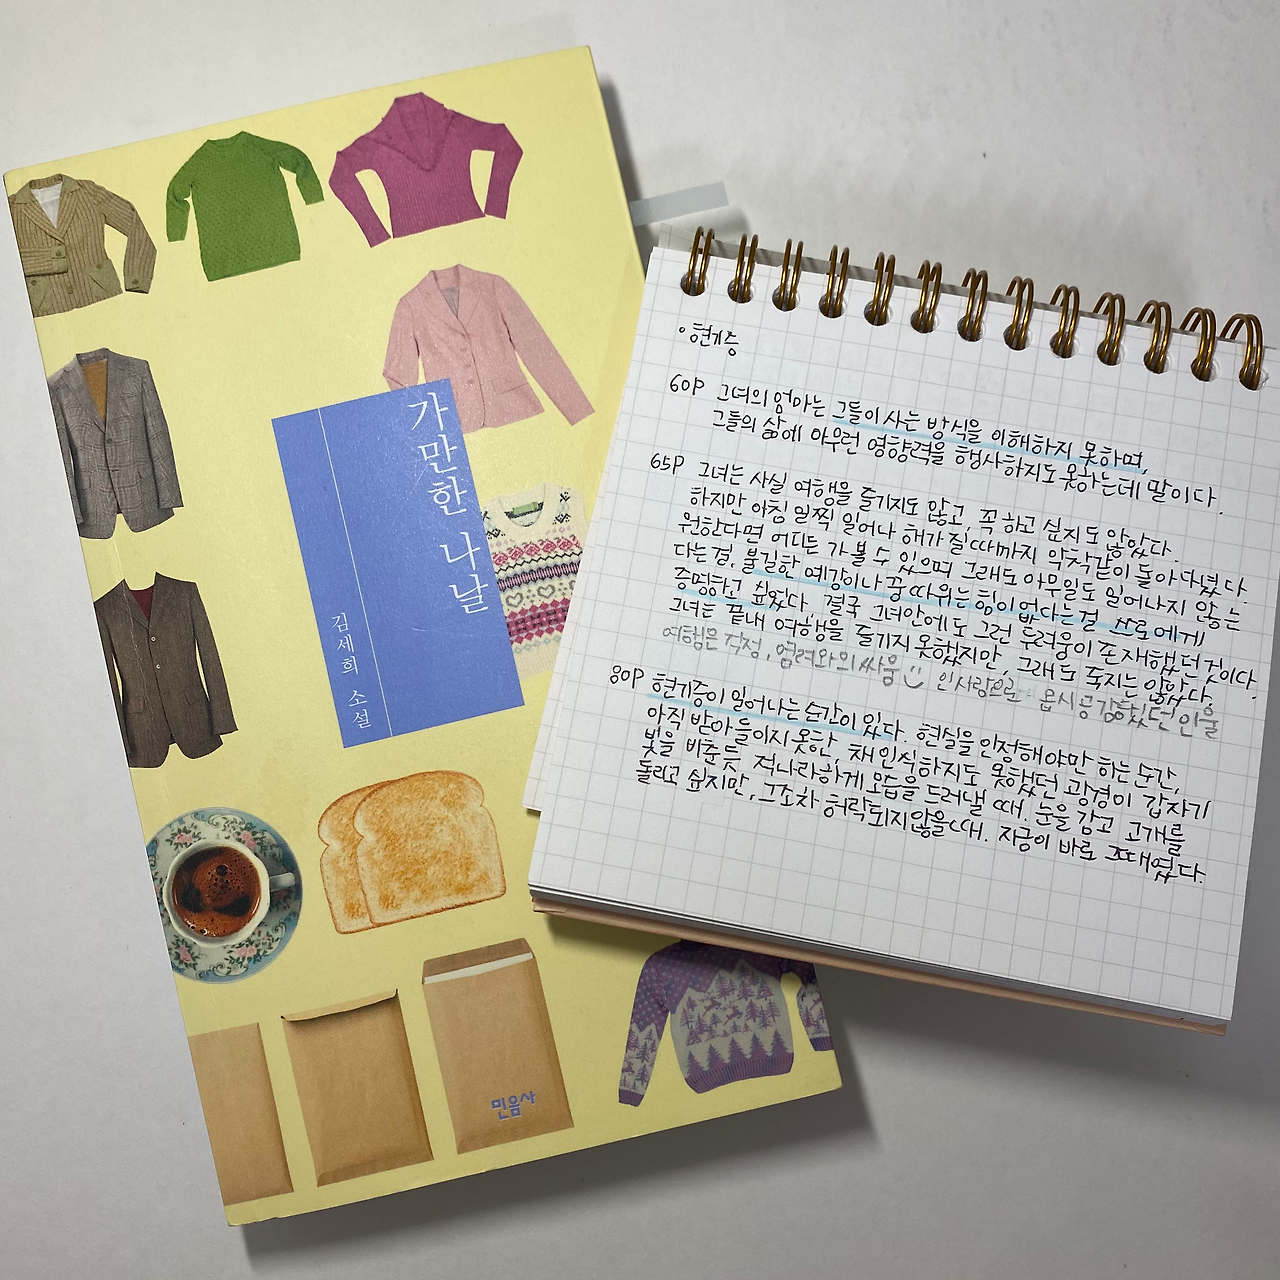 가만한 나날
김세희 소설
민음사
현기증
60P 그녀의 엄마는 그들이 사는 방식을 이해하지 못하며,
그들의 삶에 아무런 영향력을 행사하지도 못하는데 말이다.
65P 그녀는 사실 여행을 즐기지도 않고, 꼭 하고 싶지도 않았다.
하지만 아침 일찍 일어나 해가 질 때까지 악착같이 돌아다녔다.
원한다면 어디든 가 볼 수 있으며 그래도 아무일도 일어나지 않는
다는 걸, 불길한 예감이나 꿈 따위는 힘이 없다는 걸 스스로에게
증명하고 싶었다. 결국 그녀안에도 그런 두려움이 존재했던 것이다.
그녀는 끝내 여행을 즐기지 못했지만, 그래도 죽지는 않았다.
여행은 걱정, 염려와의 싸움 인사랑으로 몹시 공감했던 인물
80P 현기증이 일어나는 순간이 있다. 현실을 인정해야만 하는 순간,
아직 받아들이지 못한 채 인식하지도 못했던 광경이 갑자기
빛을 비춘듯 적나라하게 모습을 드러낼 때. 눈을 감고 고개를
돌리고 싶지만, 그조차 허락되지 않을 때. 지금이 바로 그때였다.